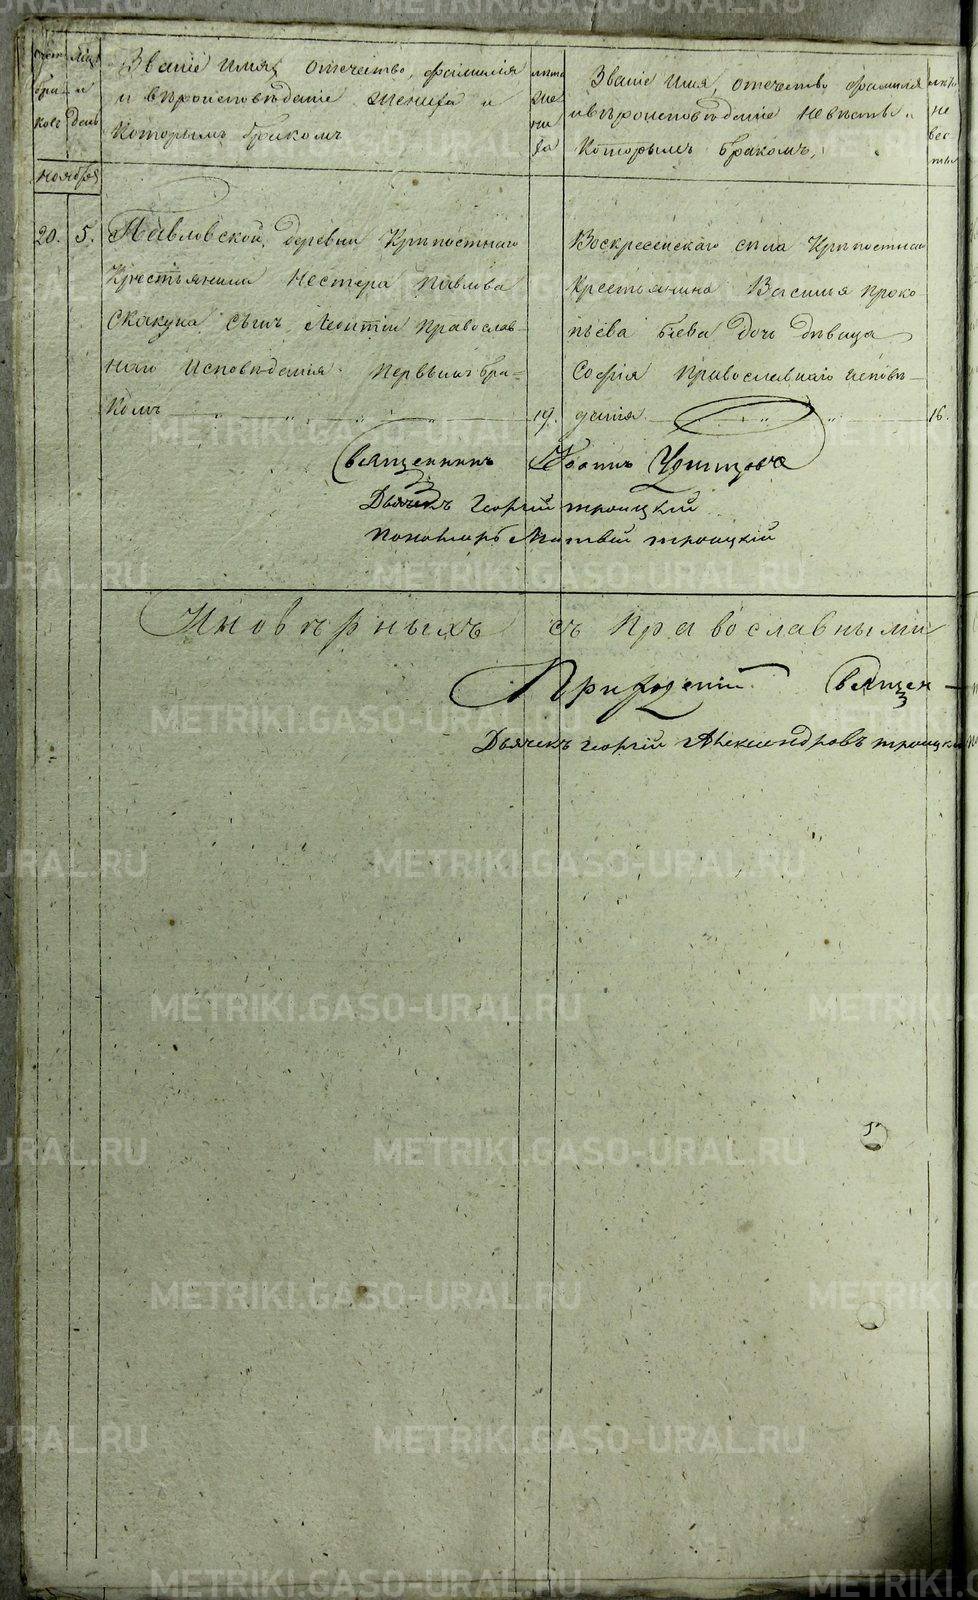 Счет брако­въ
Мѣсяцъ и день
Званіе имя, отечество, фамилія
и вѣроисповѣданіе жениха и
Которымъ бракомъ
лѣта жениха
Званіе имя, отечество фамилія
и вѣроисповѣданіе Невѣсты и
Которымъ бракомъ,
лѣта невесты
Ноября
20. 5.
Павловской деревни Крѣпостнаго
Крестьянина Нестера Павлова
Скакуна сынъ Леонтіи Православ-
наго Исповѣданія первымъ бра=
комъ 19.
Воскресенскаго села Крѣпостнаго
Крестьянина Василья Проко
пьева дочь дѣвица
Софія Православнаго исповѣ-
данія 16.
Священникъ Іоаннъ
Дьячекъ Георгій Троицкій
Пономарь Матвей Троицкій
Иновѣрныхъ съ Православными
Священ
Дьячекъ Георгій Александровъ Троицкій
METRIKI.GASO-URAL.RU